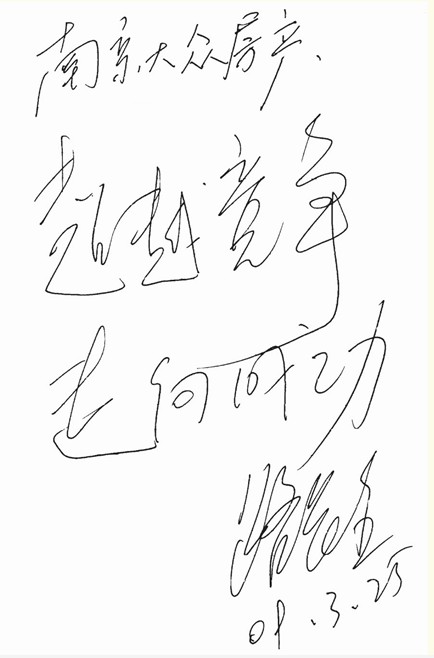 南京大众房产、
超越竞争
走向成功
01.3.25